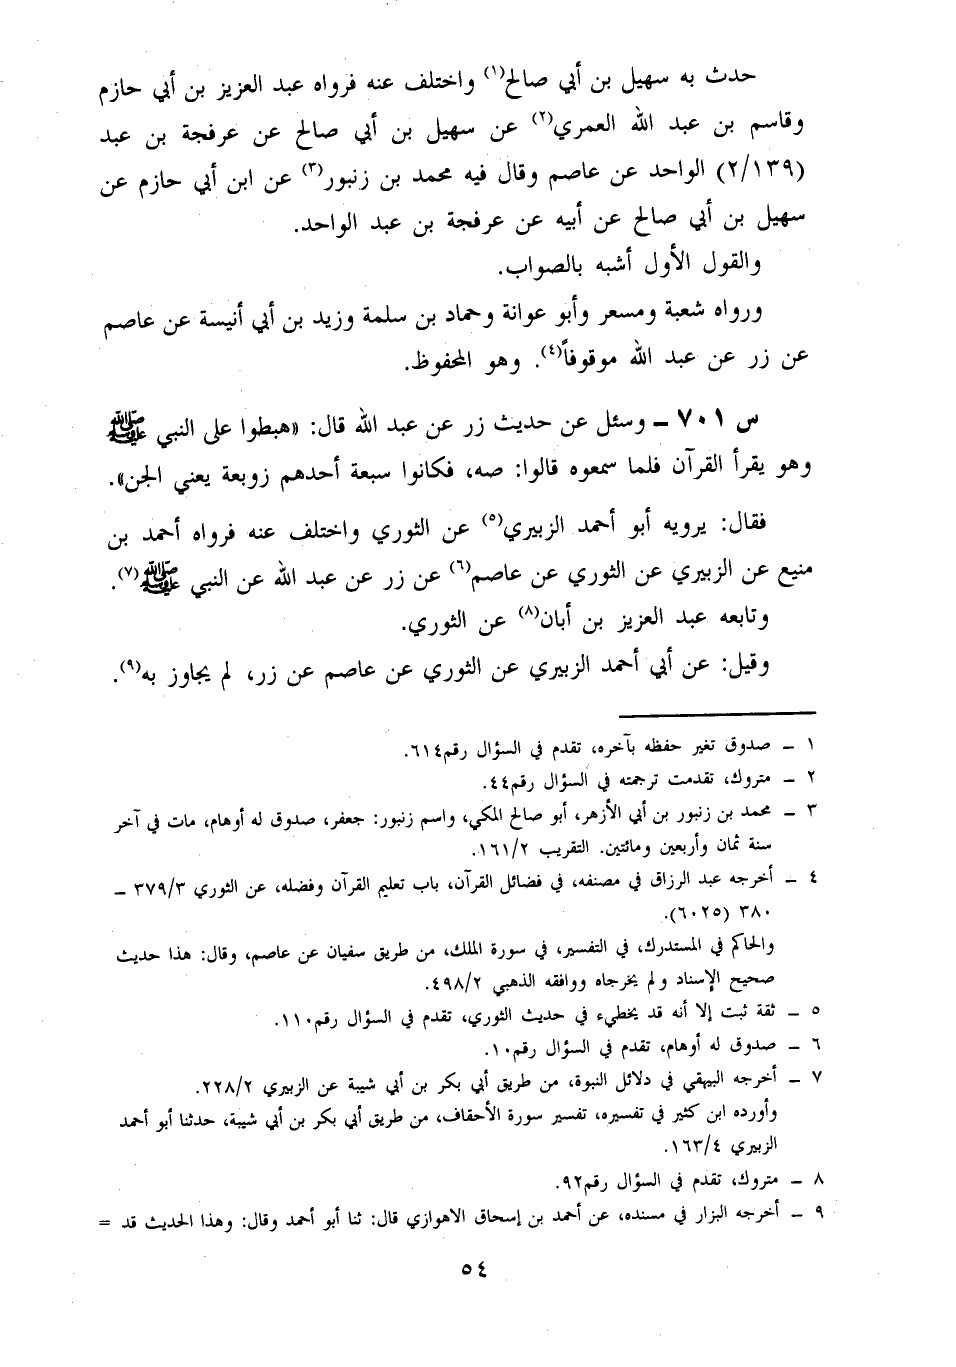 حدث به سهيل بن أبي صالح(١) واختلف عنه فرواه عبد العزيز بن أبي حازم
وقاسم بن عبد الله العمري(٢) عن سهيل بن أبي صالح عن عرفجة بن عبد
(٢/١٣٩) الواحد عن عاصم وقال فيه محمد بن زنبور(٣) عن ابن أبي حازم عن
سهيل بن أبي صالح عن أبيه عن عرفجة بن عبد الواحد.
والقول الأول أشبه بالصواب.
ورواه شعبة ومسعر وأبو عوانة وحماد بن سلمة وزيد بن أبي أنيسة عن عاصم
عن زر عن عبد الله موقوفاً(٤). وهو المحفوظ.
س ٧٠١ – وسئل عن حديث زر عن عبد الله قال: «هبطوا على النبي ﷺ
وهو يقرأ القرآن فلما سمعوه قالوا: صه، فكانوا سبعة أحدهم زوبعة يعني الجن».
فقال: يرويه أبو أحمد الزبيري(٥) عن الثوري واختلف عنه فرواه أحمد بن
منيع عن الزبيري عن الثوري عن عاصم(٦) عن زر عن عبد الله عن النبي ﷺ(٧).
وتابعه عبد العزيز بن أبان(٨) عن الثوري.
وقيل: عن أبي أحمد الزبيري عن الثوري عن عاصم عن زر، لم يجاوز به(٩).
١ – صدوق تغير حفظه بآخره، تقدم في السؤال رقم٦١٤.
٢ – متروك، تقدمت ترجمته في السؤال رقم٤٤.
٣ – محمد بن زنبور بن أبي الأزهر، أبو صالح المكي، واسم زنبور: جعفر، صدوق له أوهام، مات في آخر
سنة ثمان وأربعين ومائتين. التقريب ١٦١/٢.
٤ – أخرجه عبد الرزاق في مصنفه، في فضائل القرآن، باب تعليم القرآن وفضله، عن الثوري ٣٧٩/٣ –
٣٨٠ (٦٠٢٥).
والحاكم في المستدرك، في التفسير، في سورة الملك، من طريق سفيان عن عاصم، وقال: هذا حديث
صحيح الإسناد ولم يخرجاه ووافقه الذهبي ٤٩٨/٢.
٥ – ثقة ثبت إلا أنه قد يخطيء في حديث الثوري، تقدم في السؤال رقم١١٠.
٦ – صدوق له أوهام، تقدم في السؤال رقم١٠.
٧ – أخرجه البيهقي في دلائل النبوة، من طريق أبي بكر بن أبي شيبة عن الزبيري ٢٢٨/٢.
وأورده ابن كثير في تفسيره، تفسير سورة الأحقاف، من طريق أبي بكر بن أبي شيبة، حدثنا أبو أحمد
الزبيري ١٦٣/٤.
٨ – متروك، تقدم في السؤال رقم٩٢.
٩ – أخرجه البزار في مسنده، عن أحمد بن إسحاق الاهوازي قال: ثنا أبو أحمد وقال: وهذا الحديث قد =
٥٤